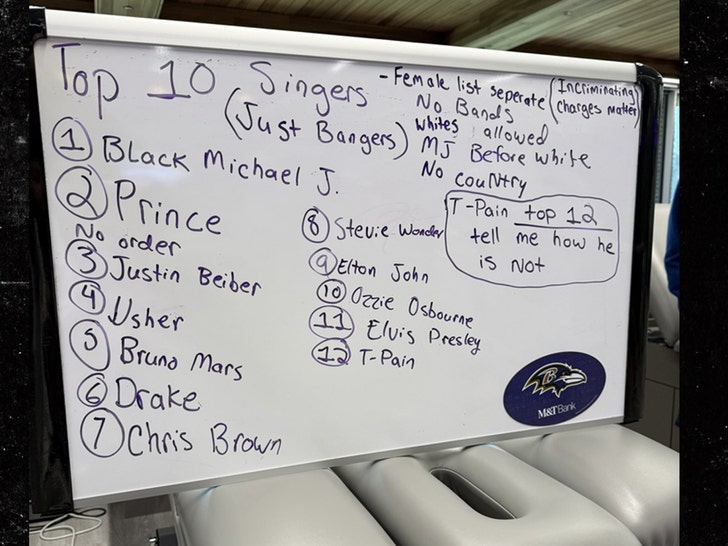 Top 10 Singers
(Just Bangers)
- Female list seperate
(Incriminating
charges matter)
No Bands
whites allowed
MJ Before white
No country
① Black Michael J.
② Prince
No order
③ Justin Beiber
④ Usher
⑤ Bruno Mars
⑥ Drake
⑦ Chris Brown
⑧ Stevie Wonder
⑨ Elton John
⑩ Ozzie Osbourne
⑪ Elvis Presley
⑫ T-Pain
T-Pain top 12
tell me how he
is Not
B
M&T Bank